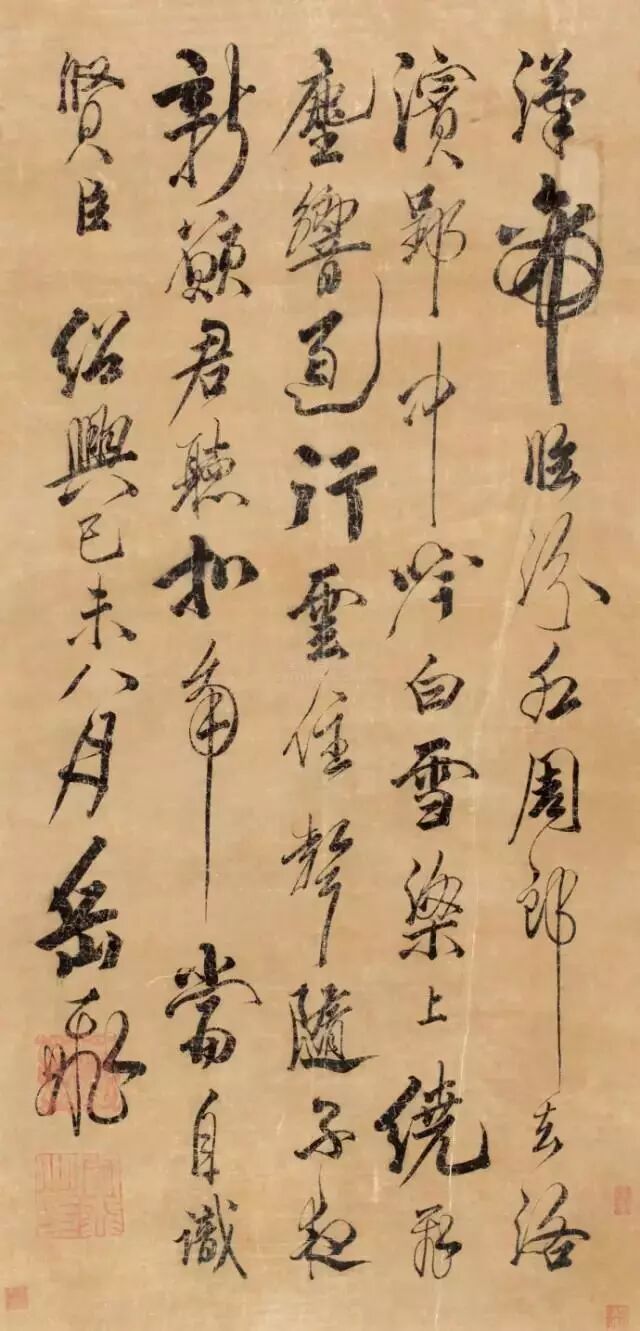 漢帝臨汾水周郎去洛
濱郢中吟白雪梁上繞飛
塵響遏行雲住聲隨子夜
新願君聽扣角當自識
賢臣 紹興己未八月岳飛